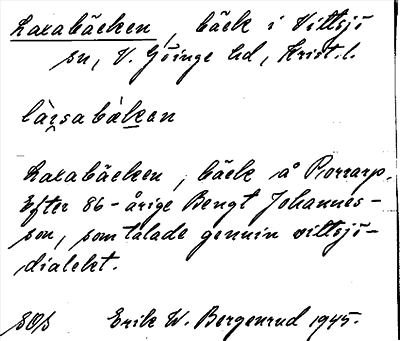 Laxabäcken, bäck i Vittsjö
sn, V. Göinge hd, Krist. l.
Laxabäcken, bäck å Porrarp.
Efter 86-årige Bengt Johannes-
son, som talade genuin vittsjö-
dialekt.
Erik W. Bergenrud 1945.